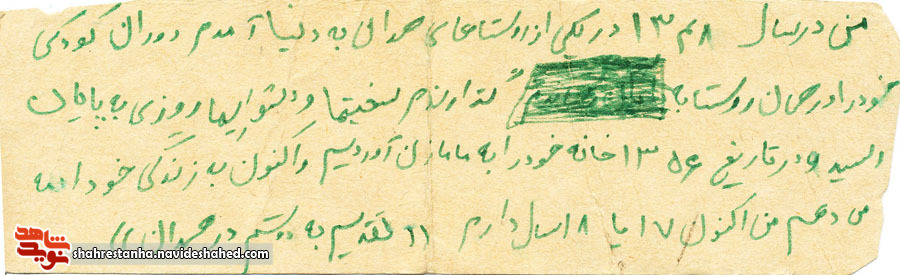 من در سال ۱۳۴۸ در یکی از روستاهای همدان به دنیا آمدم دوران کودکی
خود را در همان روستا به گذاراندم سختیها و دشواریها روزی به پایان
رسید و در تاریخ ۱۳۵۶ خانه خود را به مامازن آوردیم و اکنون به زندگی خود ادامه
می دهم من اکنون ۱۷ یا ۱۸ سال دارم ((تقدیم به دوستم در همدان))
شاهد
نوید
shahrestanha.navideshahed.com